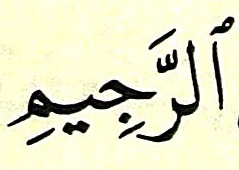 ٱلرَّجِيمِ